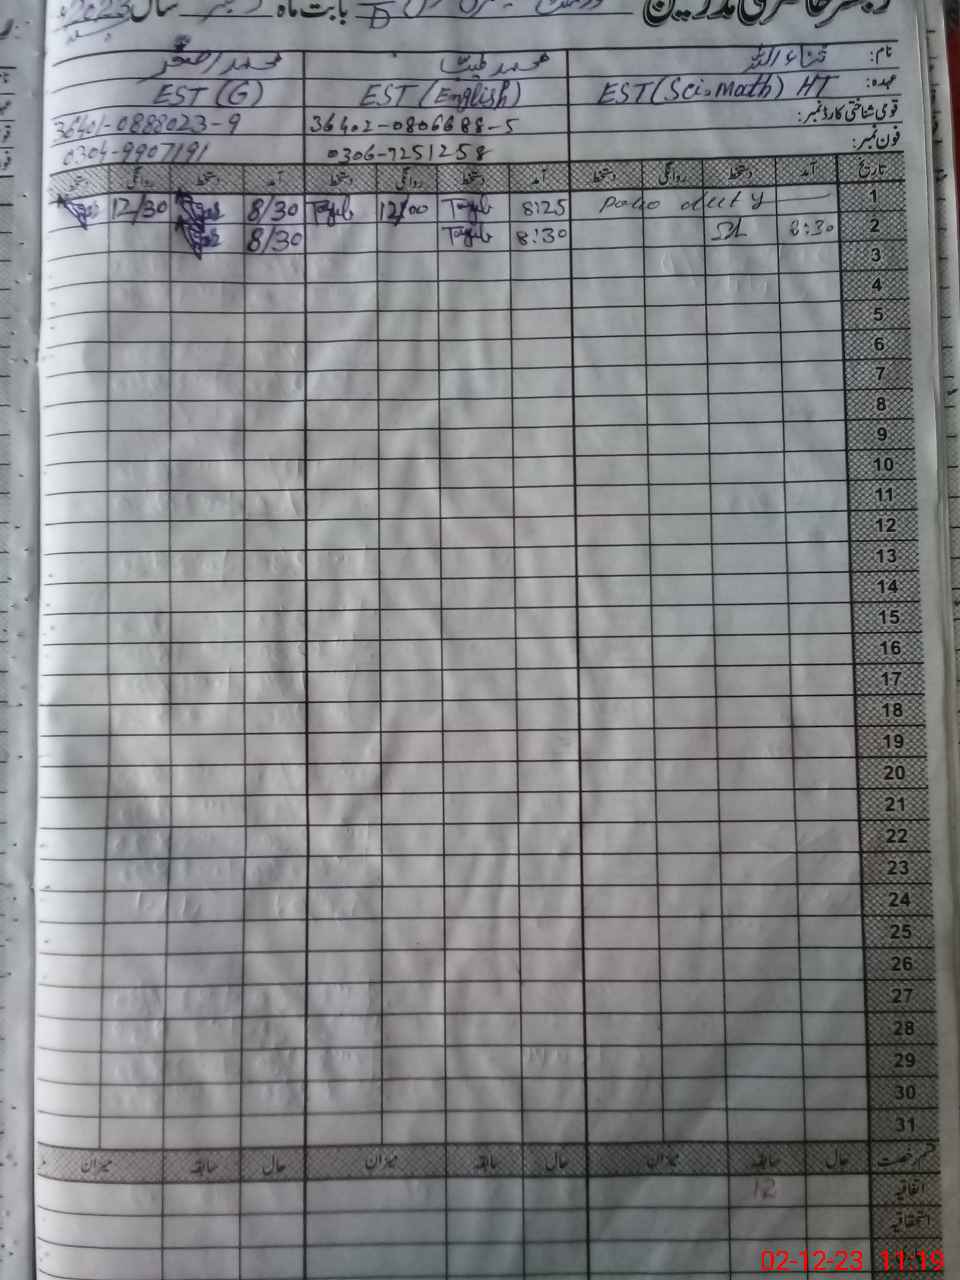 رجسٹر حاضری مدرسین بابت ماہ دسمبر سال 2023
نام: ثناء اللہ محمد طیب محمد اصغر
عہدہ: EST (Sci-Math) HT EST (English) EST (G)
قومی شناختی کارڈ نمبر: 36402-0806688-5 36401-0888023-9
فون نمبر: 0306-7251258 0304-9907191
تاریخ آمد دستخط روانگی دستخط آمد دستخط روانگی دستخط آمد دستخط روانگی دستخط
1 Polio duty 8:25 Tayyab 12/00 Tayyab 8/30 12/30
2 8:30 8:30 Tayyab 8/30
3
4
5
6
7
8
9
10
11
12
13
14
15
16
17
18
19
20
21
22
23
24
25
26
27
28
29
30
31
قسم رخصت حال سابقہ میزان حال سابقہ میزان حال سابقہ میزان
اتفاقیہ 12
استحقاقیہ
02-12-23 11:19